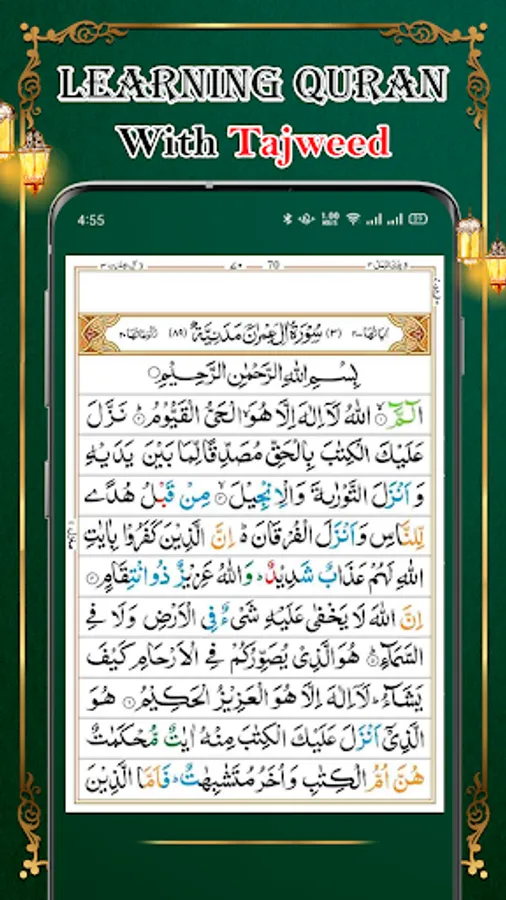 LEARNING QURAN
With Tajweed
4:55
1.00
سُوْرَةُ اٰلِ عِمْرٰنَ مَدَنِيَّةٌ (٣) (٨٩)
بِسْمِ اللهِ الرَّحْمٰنِ الرَّحِيْمِ
الٓمّٓ اللهُ لَاۤ اِلٰهَ اِلَّا هُوَ الْحَيُّ الْقَيُّوْمُ نَزَّلَ
عَلَيْكَ الْكِتٰبَ بِالْحَقِّ مُصَدِّقًا لِّمَا بَيْنَ يَدَيْهِ
وَ اَنْزَلَ التَّوْرٰىةَ وَالْاِنْجِيْلَ مِنْ قَبْلُ هُدًى
لِّلنَّاسِ وَاَنْزَلَ الْفُرْقَانَ ؕ اِنَّ الَّذِيْنَ كَفَرُوْا بِاٰيٰتِ
اللهِ لَهُمْ عَذَابٌ شَدِيْدٌ ؕ وَاللهُ عَزِيْزٌ ذُو انْتِقَامٍ
اِنَّ اللهَ لَا يَخْفٰى عَلَيْهِ شَيْءٌ فِي الْاَرْضِ وَلَا فِي
السَّمَآءِ هُوَ الَّذِيْ يُصَوِّرُكُمْ فِي الْاَرْحَامِ كَيْفَ
يَشَآءُ ؕ لَاۤ اِلٰهَ اِلَّا هُوَ الْعَزِيْزُ الْحَكِيْمُ هُوَ
الَّذِيْۤ اَنْزَلَ عَلَيْكَ الْكِتٰبَ مِنْهُ اٰيٰتٌ مُّحْكَمٰتٌ
هُنَّ اُمُّ الْكِتٰبِ وَاُخَرُ مُتَشٰبِهٰتٌ ؕ فَاَمَّا الَّذِيْنَ